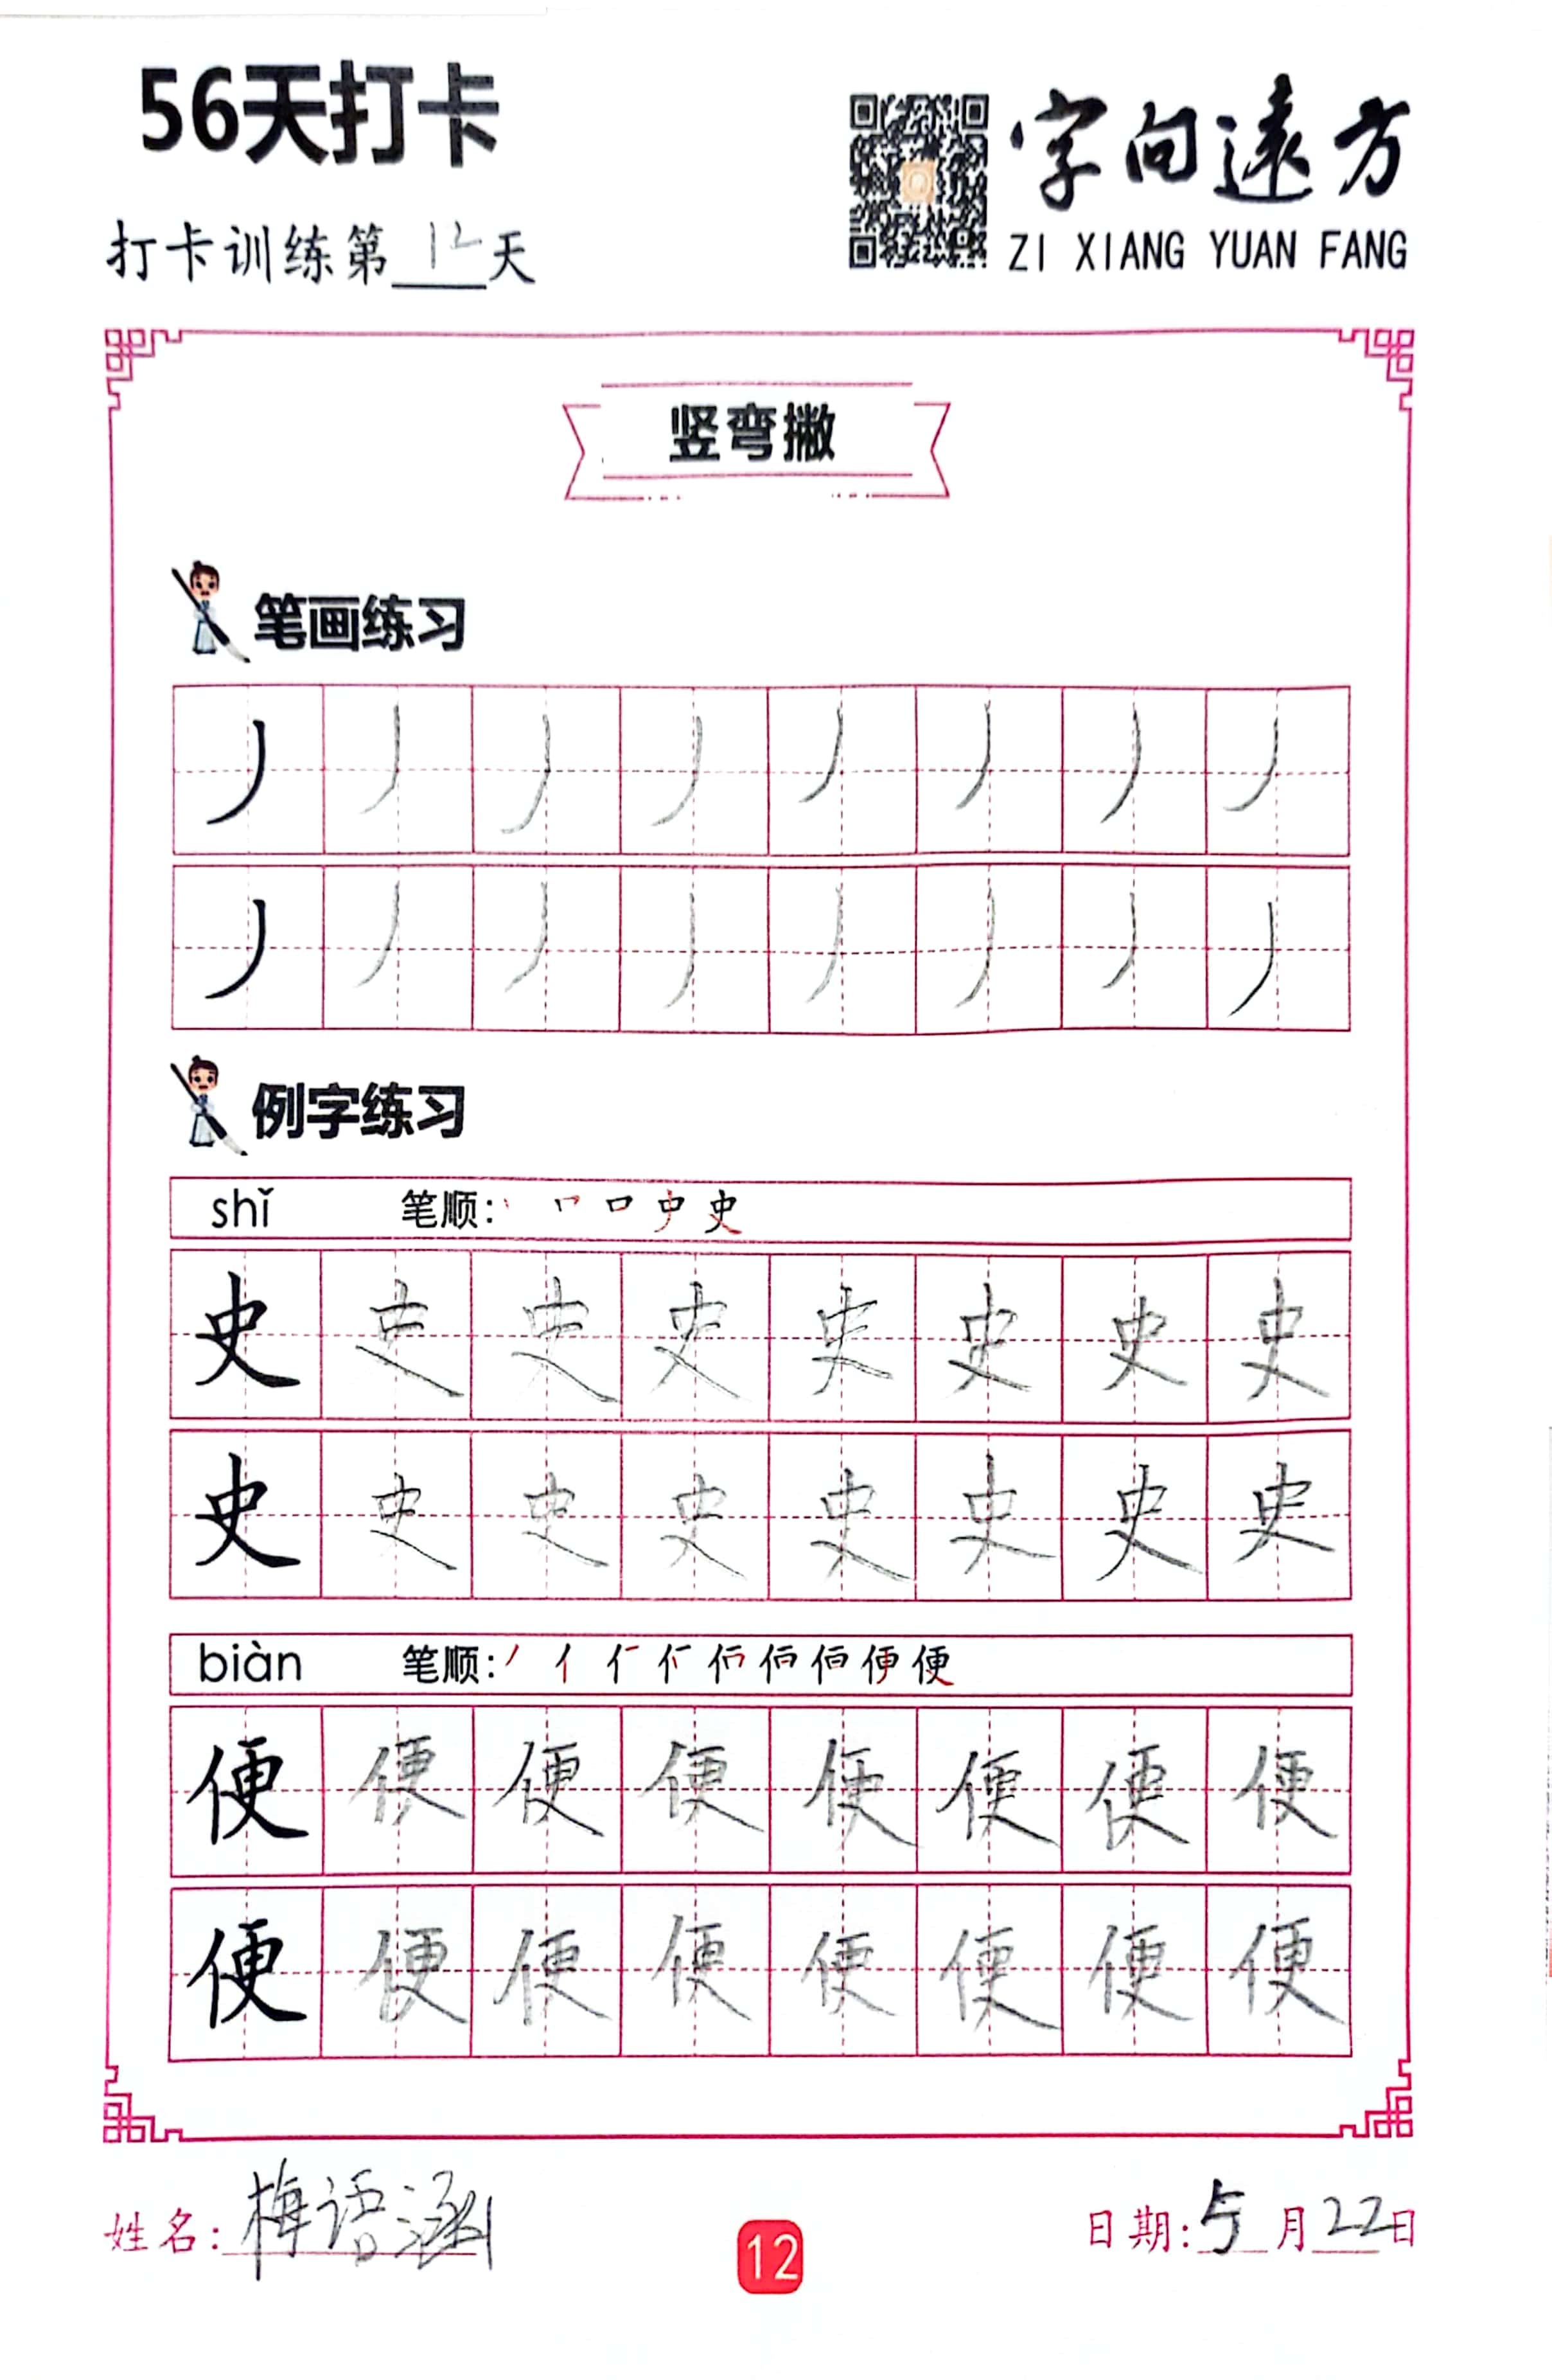 56天打卡
字向遠方
打卡训练第12天
ZI XIANG YUAN FANG
竖弯撇
笔画练习
丿 丿 丿 丿 丿 丿 丿 丿
丿 丿 丿 丿 丿 丿 丿 丿
例字练习
shǐ 笔顺: 丶 史
史 史 史 史 史 史 史 史
史 史 史 史 史 史 史 史
biàn 笔顺: 丿 亻 便
便 便 便 便 便 便 便 便
便 便 便 便 便 便 便 便
姓名: 梅语涵
12
日期: 5月22日